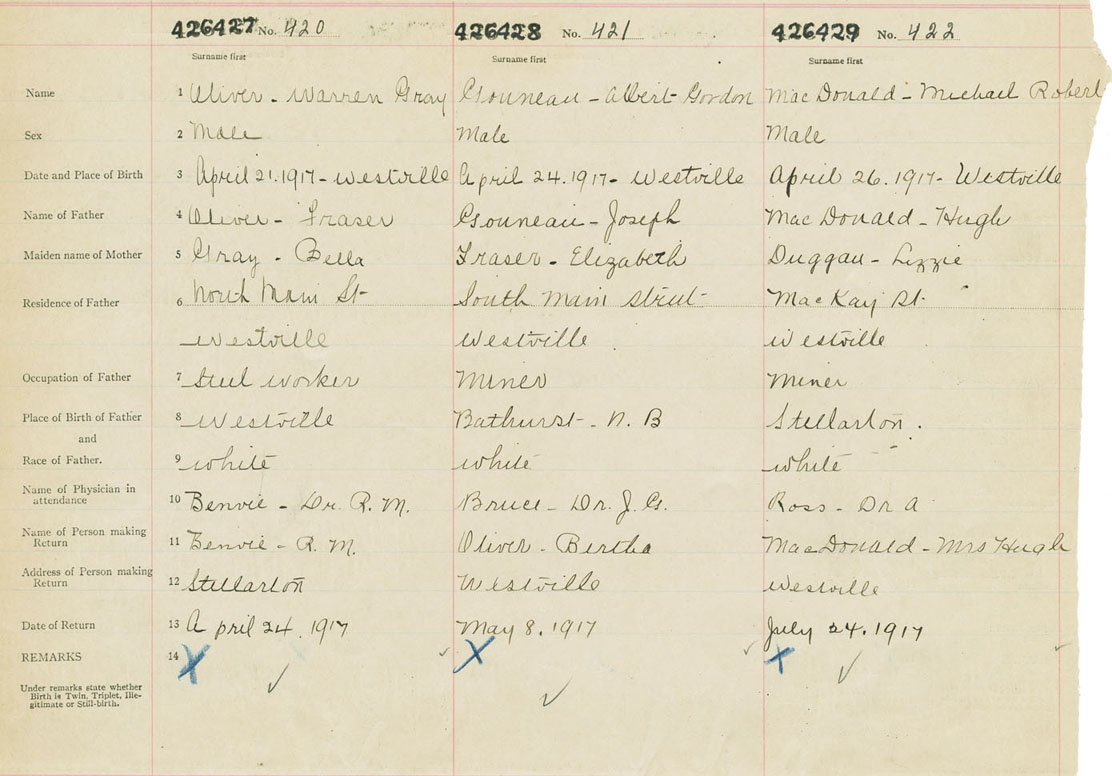 426427 No. 420 426428 No. 421 426429 No. 422
Surname first Surname first Surname first
Name 1 Oliver - Warren Gray Gouneau - Albert Gordon MacDonald - Michael Robert
Sex 2 Male Male Male
Date and Place of Birth 3 April 21. 1917 - Westville April 24. 1917 - Westville April 26. 1917 - Westville
Name of Father 4 Oliver - Fraser Gouneau - Joseph MacDonald - Hugh
Maiden name of Mother 5 Gray - Bella Fraser - Elizabeth Duggan - Lizzie
Residence of Father 6 North Main St South Main Street MacKay St.
Westville Westville Westville
Occupation of Father 7 Steel worker Miner Miner
Place of Birth of Father 8 Westville Bathurst - N. B Stellarton.
and
Race of Father. 9 white white white
Name of Physician in attendance 10 Benvie - Dr. R. M. Bruce - Dr. J. G. Ross - Dr A
Name of Person making Return 11 Benvie - R. M. Oliver - Bertha MacDonald - Mrs Hugh
Address of Person making Return 12 Stellarton Westville Westville
Date of Return 13 April 24. 1917 May 8. 1917 July 24. 1917
REMARKS 14 X X X
Under remarks state whether
Birth is Twin, Triplet, Ille-
gitimate or Still-birth.